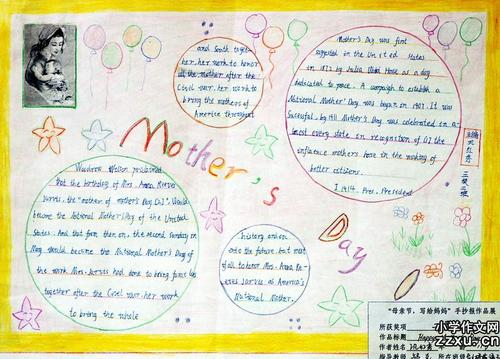 Mother's Day
Mother's Day was first
suggested in the United States
in 1872 by Julia Ward Howe as a day
dedicated to peace. A campaign to establish a
National Mother' Day was began in 1907. It was
by 1911 Mother's Day was celebrated in a-
lmost every state in recognition of
influence mothers have in the making of
better citizens.
I 1914. Pres. President
Woodrow Wilson proclaimed
that the birthday of Mrs. Anna Reeves
Jarvis. the "mother of mother's Day
become the National Mother's Day of the United
States. And that from then on, the second Sunday in
May would become the National Mother's Day of
the work Mrs. Jarvis had done to bring
together after the Civil war. her work
to bring the whole
and South toge
her. her work to honor
all the mother after the
Civil war. her work to
bring the mothers of
America
history
onto the future. but most
of all to honor Mrs. Anna Re-
eves Jarvis as America's
National Mother.
三
"母亲节，写给妈妈"手抄报作品展
所获奖项
作品标题
作者姓名
指导教师
小学作文网
zzxu.cn